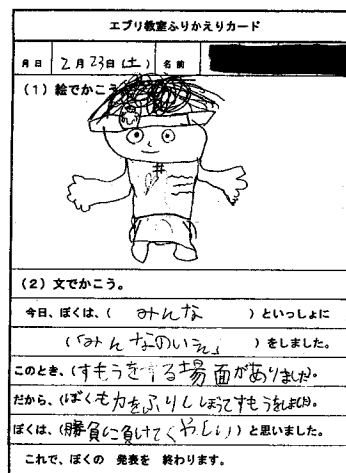 エブリ教室ふりかえりカード
月日 2月23日(土) 名前
(1)絵でかこう
(2)文でかこう。
今日、ぼくは、( みんな )といっしょに
(「みんなのいえ」 )をしました。
このとき、(すもうをする場面がありました)。
だから、(ぼくも力をふりしぼってすもうをしました)。
ぼくは、(勝負に負けてくやしい)と思いました。
これで、ぼくの 発表を 終わります。